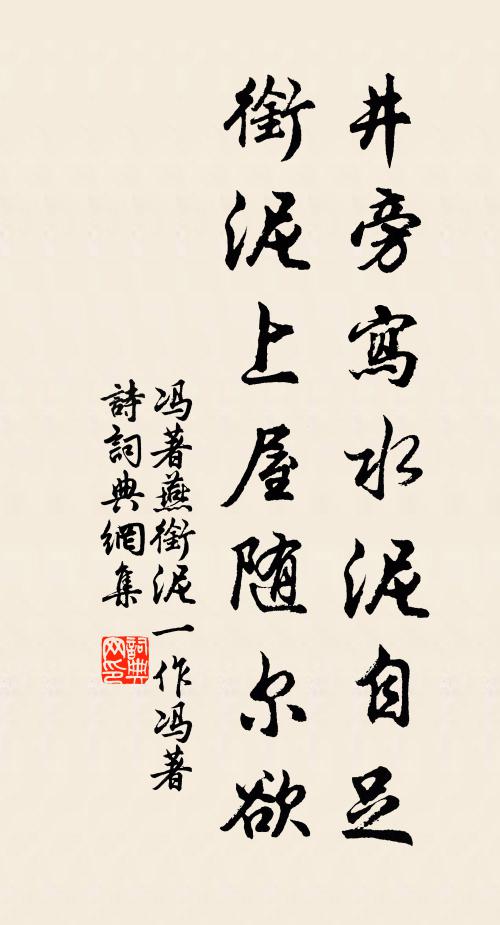 井旁寫水泥自足
銜泥上屋随尔欲
冯著燕銜泥一作冯著
詩詞典網集
詞典網印